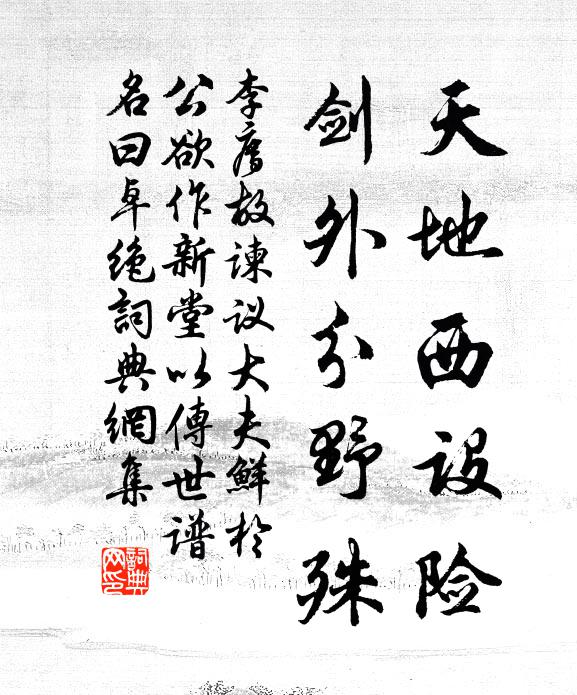 天地西设险
剑外分野殊
李廌故谏议大夫鲜於
公欲作新堂以傅世谱
名曰卓绝詞典網集
詞典
网印